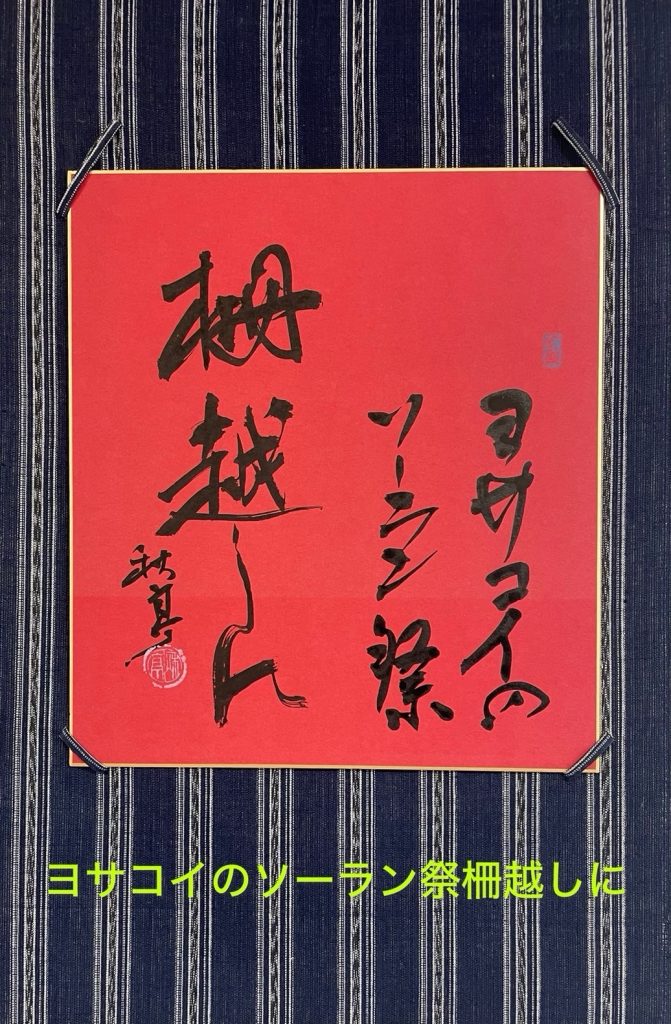 ヨサコイの
ソーラン祭
柵越しに
秋亭
ヨサコイのソーラン祭柵越しに